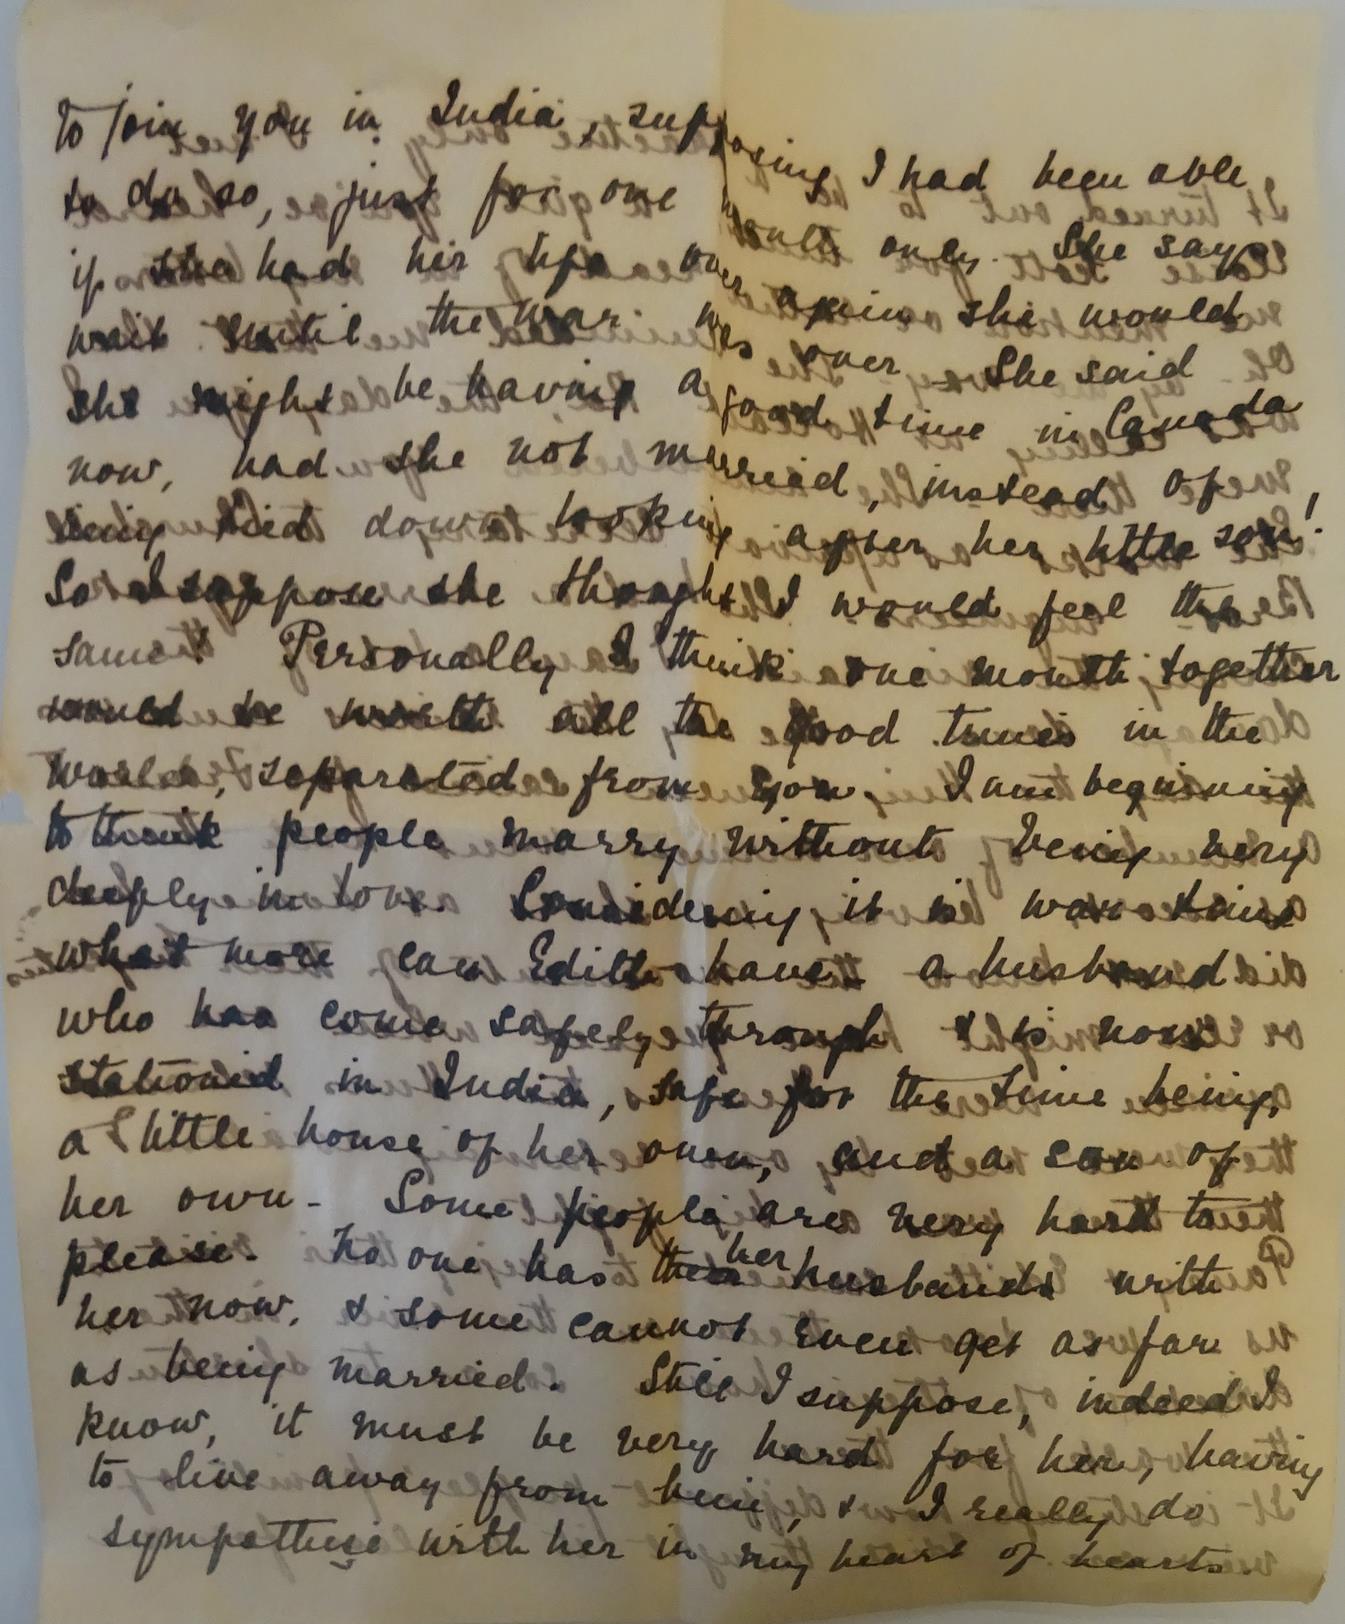 to join you in India, supposing I had been able
to do so, just for one month only. She says
if she had her life over again she would
wait until the war was over. She said
she might be having a good time in Canada
now, had she not married, instead of
being tied down looking after her little son!
So I suppose she thought I would feel the
same! Personally I think one month together
would be worth all the good times in the
world, separated from you. I am beginning
to think people marry without being very
deeply in love. Considering it is war time
what more can Edith have? a husband
who has come safely through & is now
stationed in India, safe for the time being,
a little house of her own, and a son of
her own - Some people are very hard to
please. No one has her husbands with
her now, & some cannot even get as far
as being married. Still I suppose, indeed I
know, it must be very hard for her, having
to live away from him, & I really do
sympathise with her in my heart of hearts.